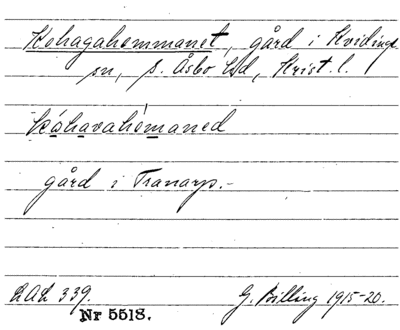 Kohagahemmanet, gård i Kvidinge
sn, S. Åsbo hd, Krist. l.
kóhavahèmaned
gård i Tranarp.-
LAL 339.
Nr 5518.
G. Billing 1915-20.